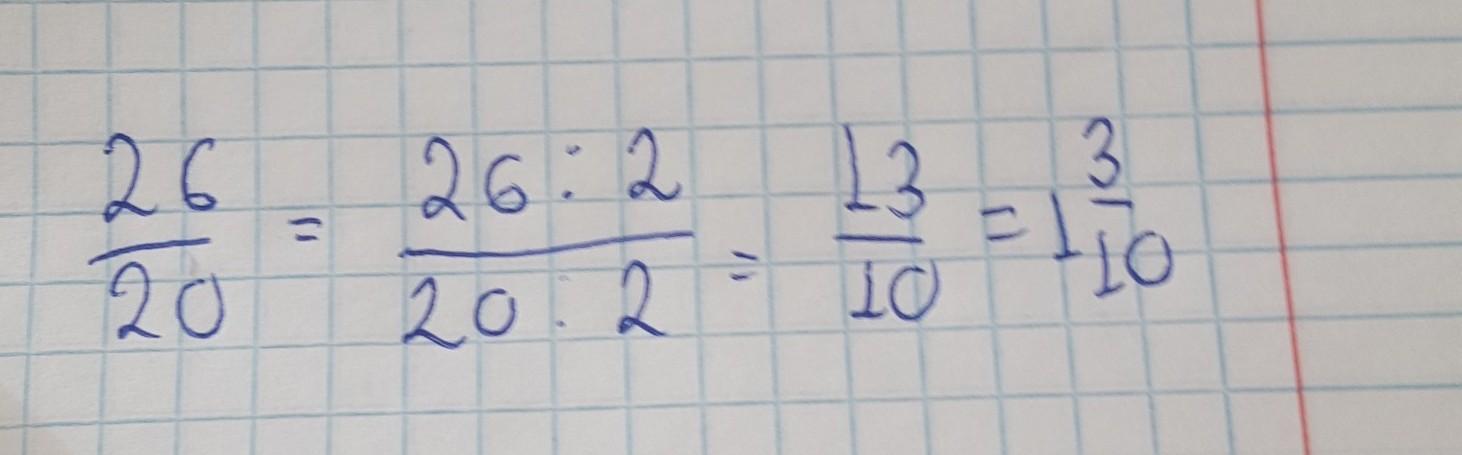 26/20 = 26 : 2/20 : 2 = 13/10 = 1 3/10